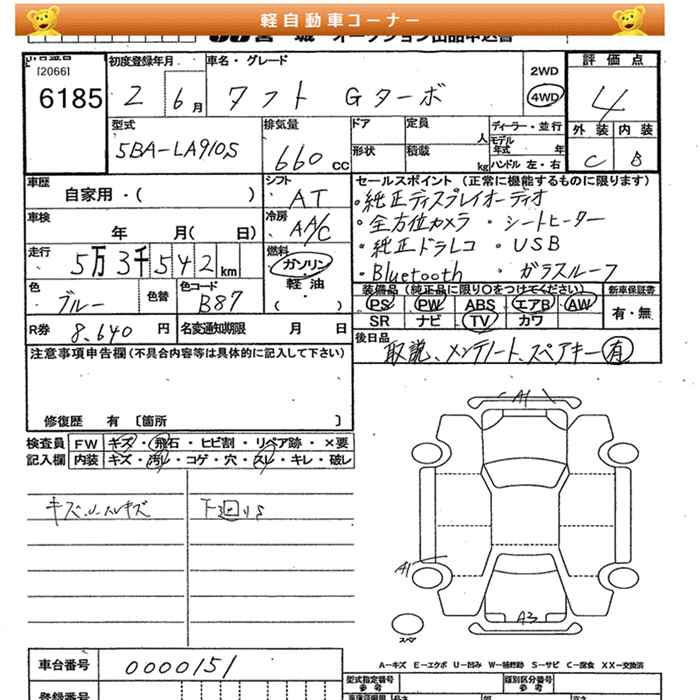 軽自動車コーナー
[2066]
6185
初度登録年月
2 6月
車名・グレード
タフト Gターボ
2WD
4WD
評価点
4
外装 内装
C B
型式
5BA-LA910S
排気量
660 CC
ドア
形状
定員
人
積載
kg
ディーラー・並行
モデル年式 年
ハンドル 左・右
車歴
自家用・( )
シフト
AT
車検
年 月( 日)
冷房
AA/C
走行
5万3千542km
燃料
ガソリン・
軽油・
( )
色
ブルー
色替
色コード
B87
R券 8,640 円
名変通知期限 月 日
セールスポイント(正常に機能するものに限ります)
・純正ディスプレイオーディオ
・全方位カメラ ・シートヒーター
・純正ドラレコ ・USB
・Bluetooth ・ガラスルーフ
装備品(純正品に限り○をつけてください)
PS PW ABS エアB AW
SR ナビ TV カワ
新車保証書
有・無
後日品
取説、メンテノート、スペアキー有
注意事項申告欄(不具合内容等は具体的に記入して下さい)
修復歴 有〔箇所 〕
検査員記入欄
FW キズ・飛石・ヒビ割・リペア跡・×要
内装 キズ・汚れ・コゲ・穴・スレ・キレ・破レ
下廻りS
A1
A1
A3
スペア
A-キズ E-エクボ U-凹み W-補修跡 S-サビ C-腐食 XX-交換済
車台番号
0000151
登録番号
型式指定番号
参考
類別区分番号
参考